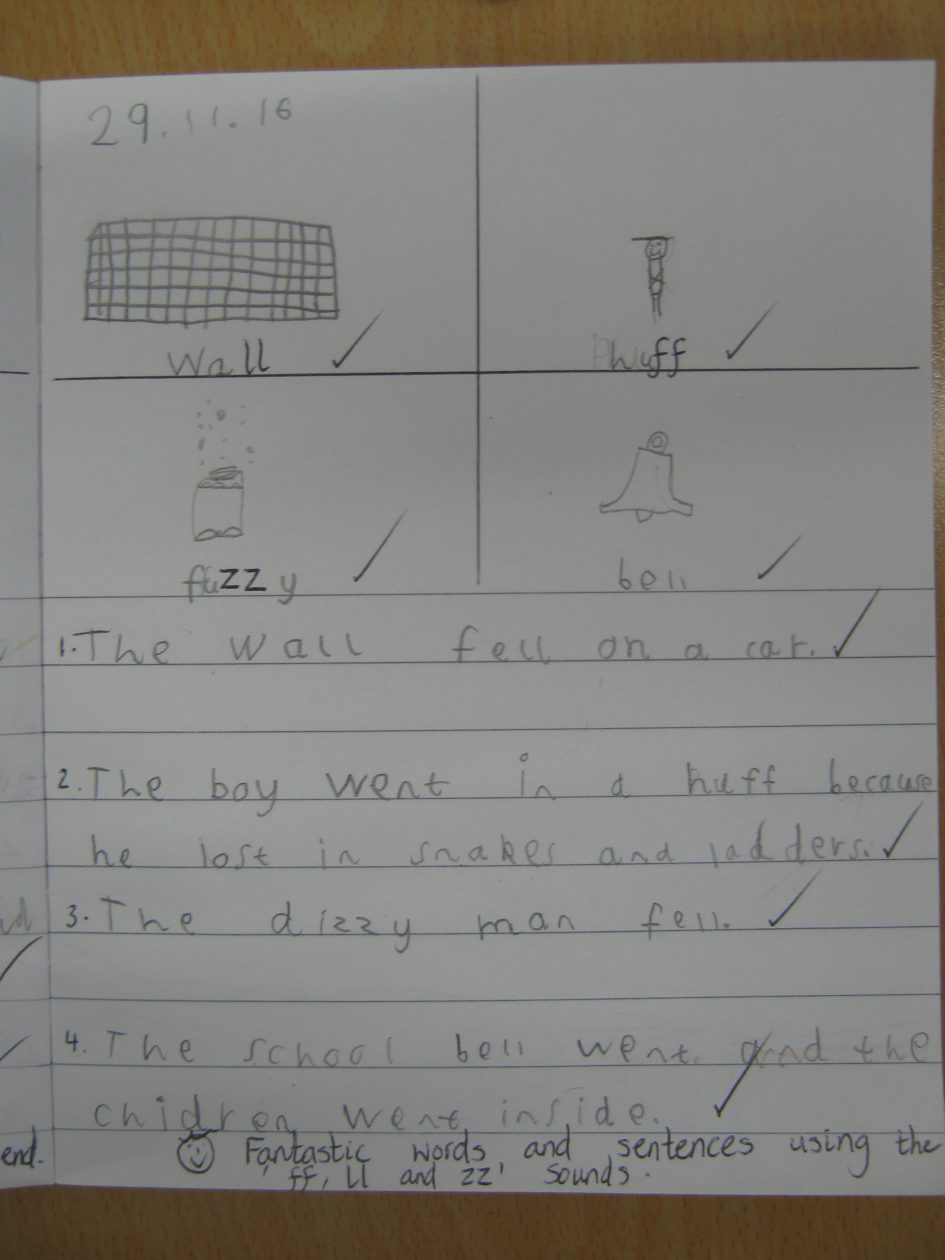 29.11.16
Wall
huff
fuzzy
bell
1. The wall fell on a car.
2. The boy went in a huff because
he lost in snakes and ladders.
3. The dizzy man fell.
4. The school bell went. and the
chidren went inside.
end.
Fantastic words and sentences using the
'ff, ll and zz' sounds.